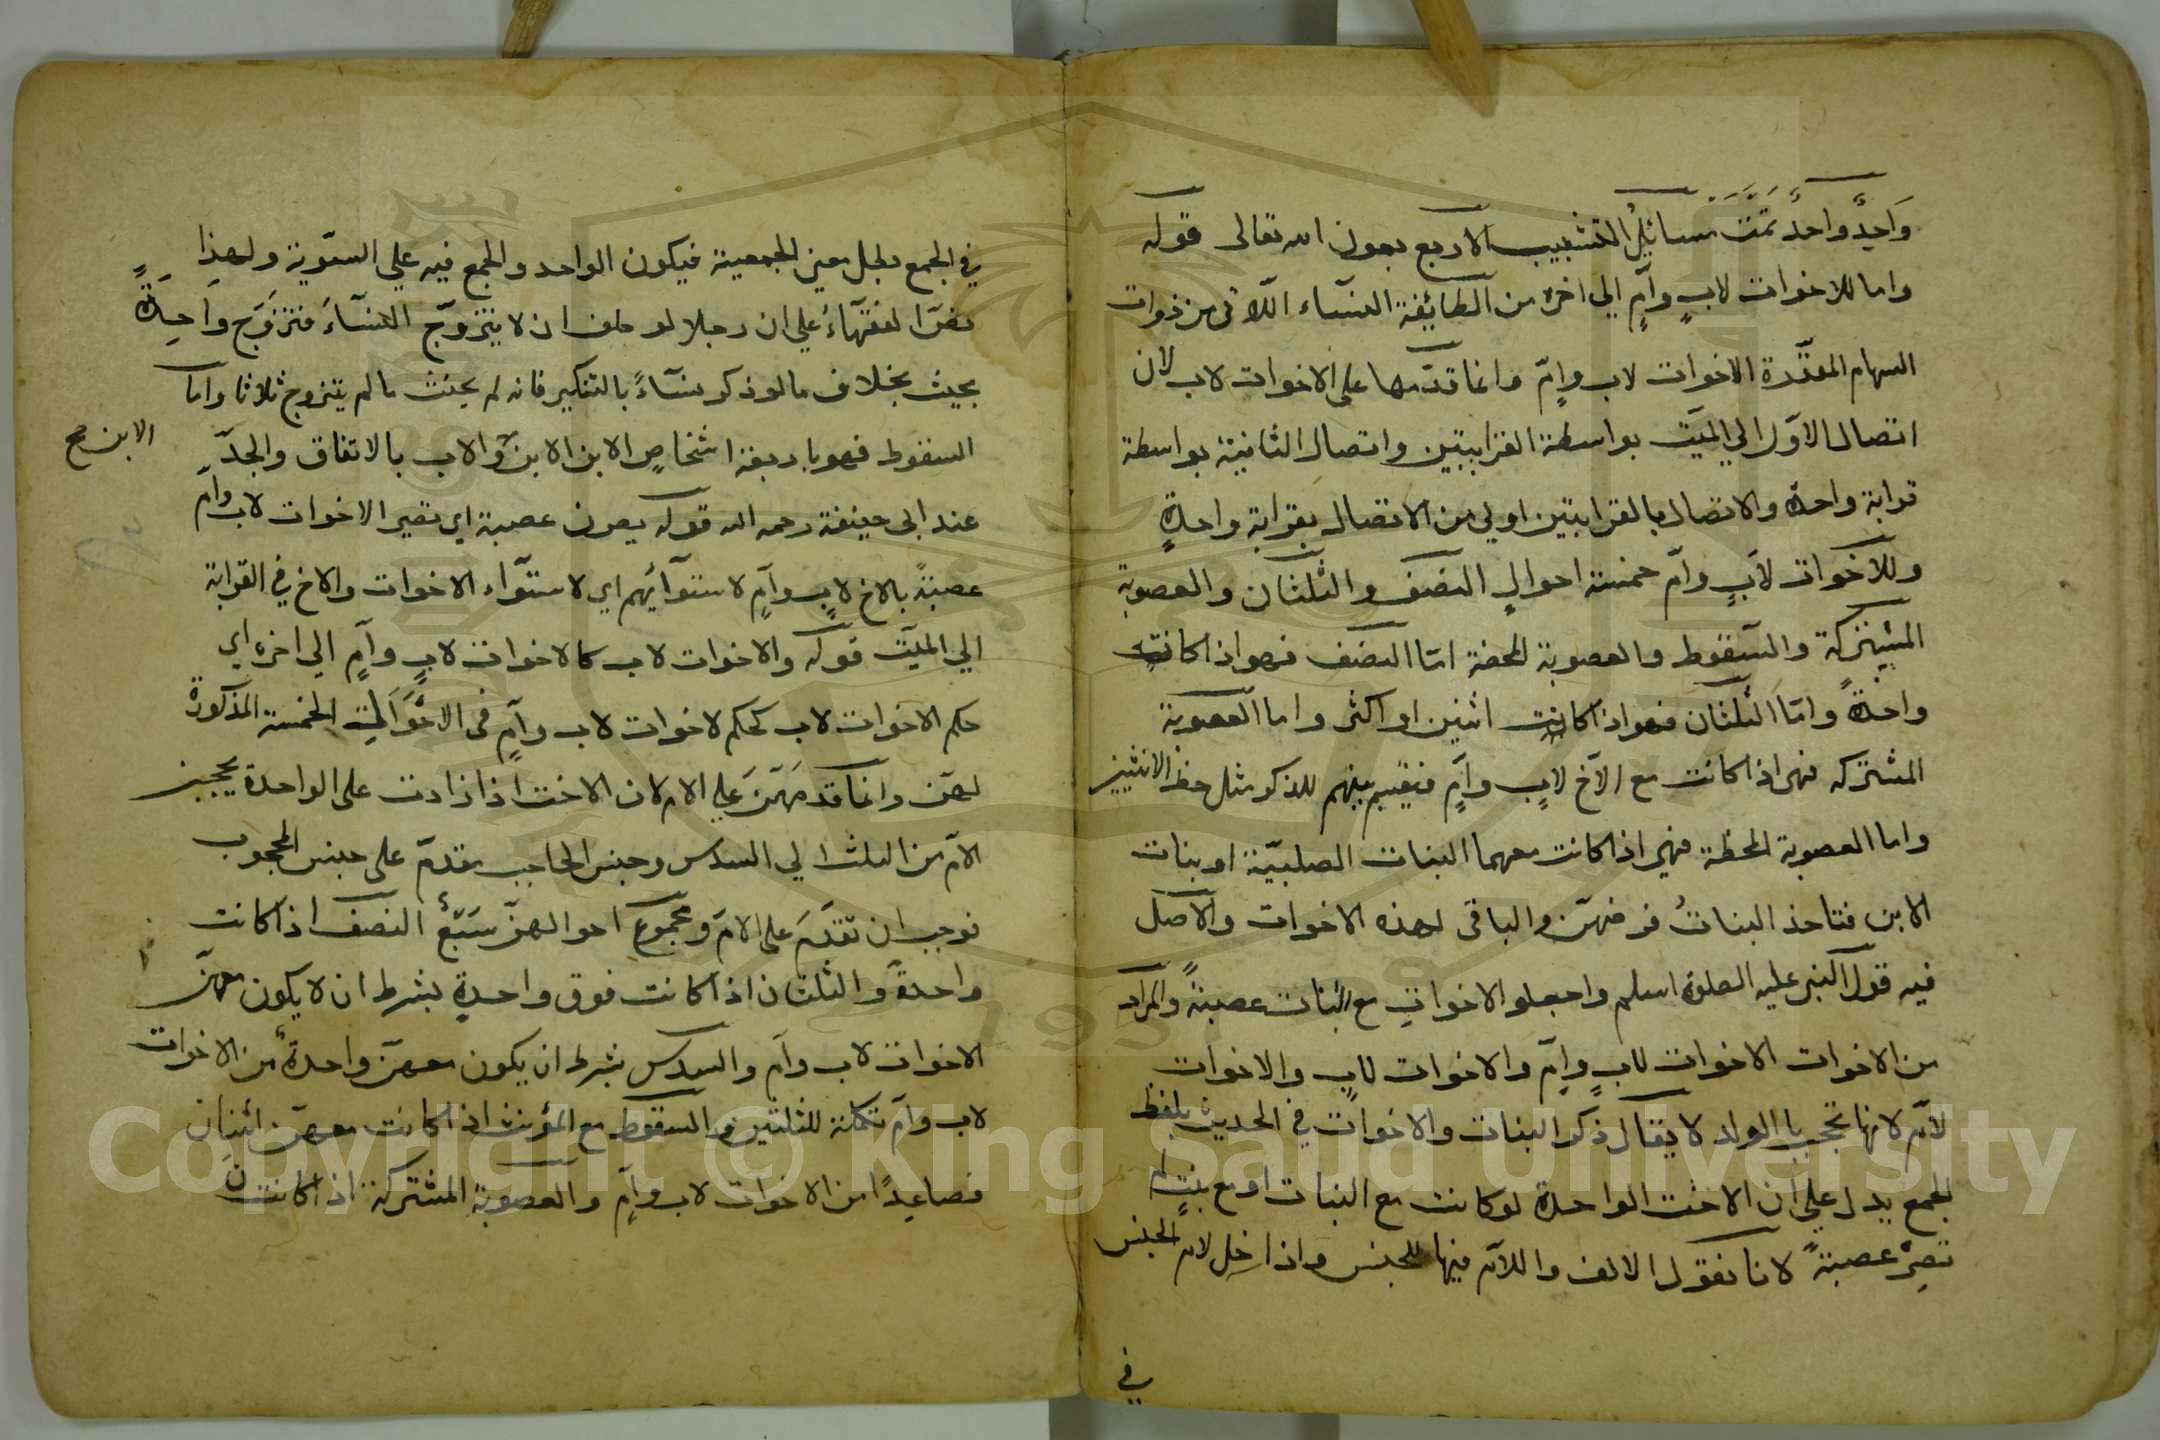 واحدٌ واحدٌ تمّت مسائل التشبيب الاربع بعون الله تعالى قوله
واما للاخوات لابٍ وامٍ الي اخره من الطائفة النسآء اللاتى من ذوات
السهام المقدّرة الاخوات لاب وامّ وانما قدّمها على الاخوات لاب لان
اتصال الاوّل الي الميّت بواسطة القرابتين واتصال الثانية بواسطة
قرابة واحدة والاتصال بالقرابتين اولي من الاتصال بقرابة واحدةٍ
وللاخوات لابٍ وامّ خمسة احوالٍ النصف والثلثان والعصوبة
المشتركة والسقوط والعصوبة المحضة امّا النصف فهو اذا كانت
واحدةً وامّا الثلثان فهو اذا كانت اثنين او اكثر واما العصوبة
المشتركه فهى اذا كانت مع الاخ لابٍ وامٍّ فيقسم بينهم للذكر مثل حظ الانثيين
واما العصوبة المحظة فهي اذا كانت معهما البنات الصلبيّة او بنات
الابن فتاخذ البناتُ فرضهنّ والباقى لهذه الاخوات والاصل
فيه قول النبى عليه الصلوة اسلم واجعلو الاخواتِ مع البنات عصبةً والمراد
من الاخوات الاخوات لابٍ وامّ والاخوات لابٍ والاخوات
لامّ لانها تحجب با الولد لا يقال ذكر البنات والاخوات في الحديث بلفظ
الجمع يدل علي ان الاخت الواحدة لو كانت مع البنات او مع بنتٍ لم
تصِرْ عصبةً لانا نقول الالف واللام فيها للجنس واذا دخل لام الجنس
في
في الجمع بطل معنى الجمعية فيكون الواحد والجمع فيه علي السّوية ولهذا
نصّ الفقهآءُ علي ان رجلا لو حلف ان لا يتزوّج النسآءَ فتزوّج واحدةً
يحنث بخلاف ما لو ذكر نسآءً بالتنكير فانه لم يحنث ما لم يتزوج ثلاثا واما
السقوط فهو باربعة اشخاصٍ الابن الابن والاب بالاتفاق والجدّ
الابن صح
عند ابى حنيفة رحمه الله قوله يصرن عصبة اي تصير الاخوات لاب وامّ
عصبةً بالاخ لابٍ وامٍ لاستوآئهم اي لاستوآء الاخوات والاخ في القرابة
الي الميّت قوله والاخوات لاب كالاخوات لابٍ وامٍّ الي اخره اي
حكم الاخوات لاب كحكم لاخوات لاب وامٍ فى الاحوالِ الخمسة المذكورة
لهنّ وانما قدمهنّ علي الام لان الاخت اذا زادت على الواحدة يحجبن
الامّ من الثلث الي السدس وجنس الحاجب مقدمّ على جنس المحجوب
فوجب ان تقدّم على الامّ ومجموع احوالهنّ سَبعٌ النصف اذا كانت
واحدةً والثلثان اذا كانت فوق واحدةٍ بشرط ان لا يكون معهنّ
الاخوات لاب وامّ والسدس بشرط ان يكون معهنّ واحدةٌ من الاخوات
لاب وامّ تكملة للثلثين والسقوط مع المؤنث اذا كانت معهنّ اثنتان
فصاعدًا من الاخوات لاب وامٍ والعصوبة المشتركة اذا كانت